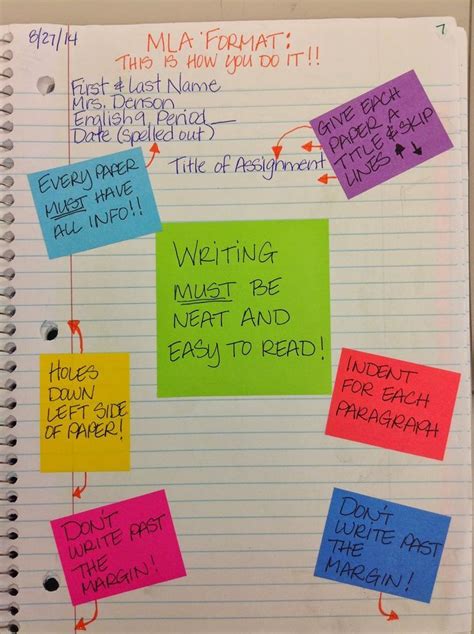 8/27/14
7
MLA FORMAT:
THIS IS HOW YOU DO IT!!
First & Last Name
Mrs. Denson
English 9, Period __
Date (spelled out)
Title of Assignment
GIVE EACH
PAPER A
TITLE & SKIP
LINES ↑↓
EVERY PAPER
MUST HAVE
ALL INFO!!
WRITING
MUST BE
NEAT AND
EASY TO READ!
HOLES
DOWN
LEFT SIDE
OF PAPER!
INDENT
FOR EACH
PARAGRAPH
DON'T
WRITE PAST
THE
MARGIN!
DON'T
WRITE PAST
THE
MARGIN!